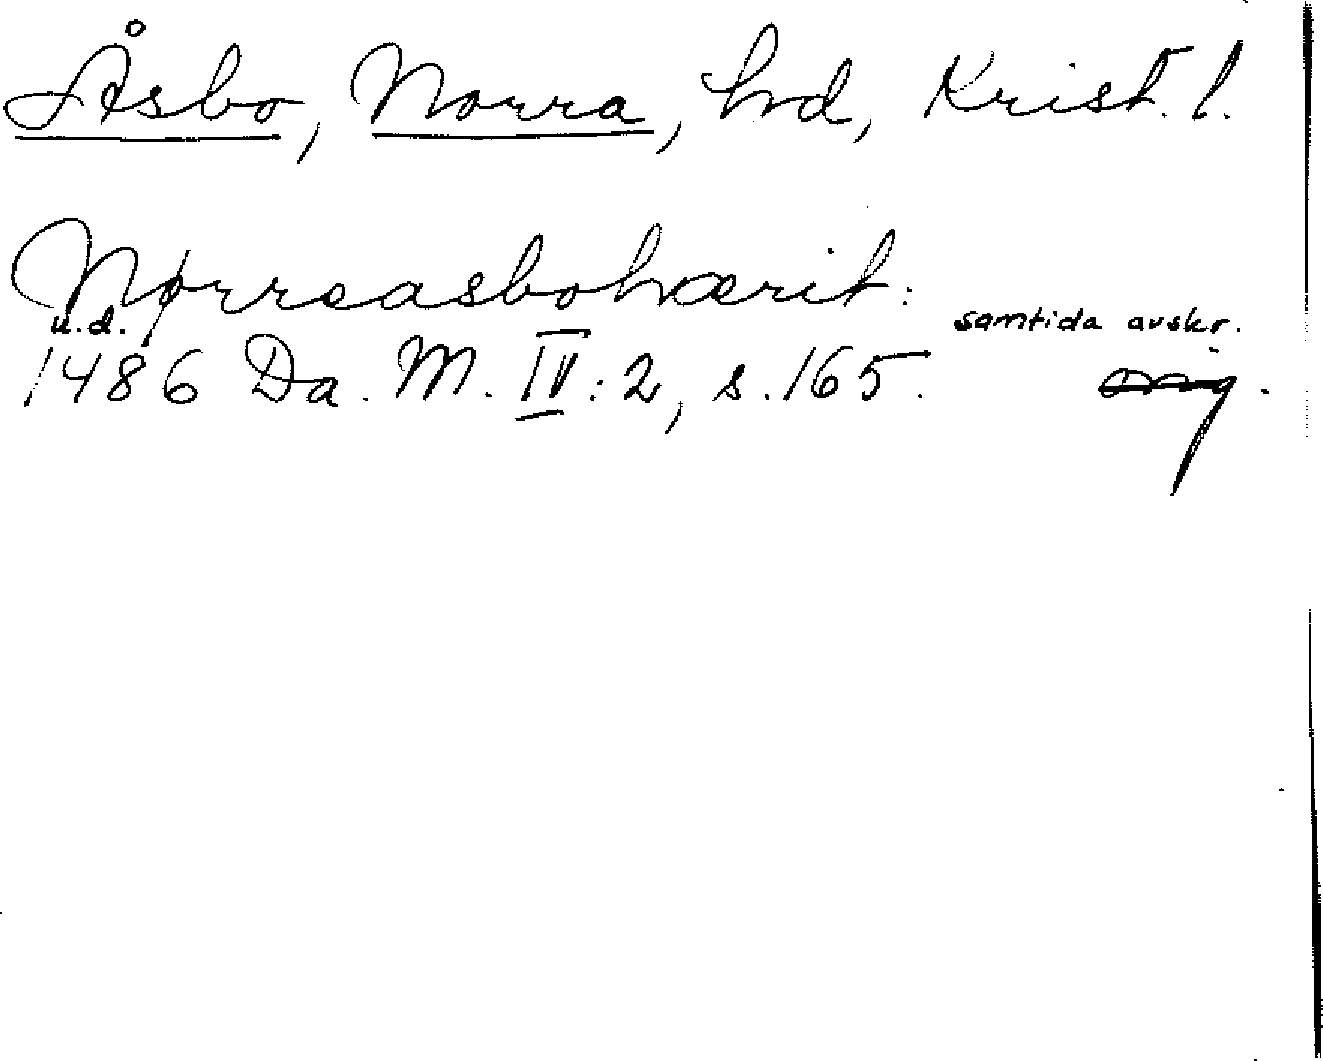 Åsbo, Norra, hd, Krist. l.
Nørreasbohærit:
u.d. samtida avskr.
1486 Da. M. IV:2, s. 165. orig.